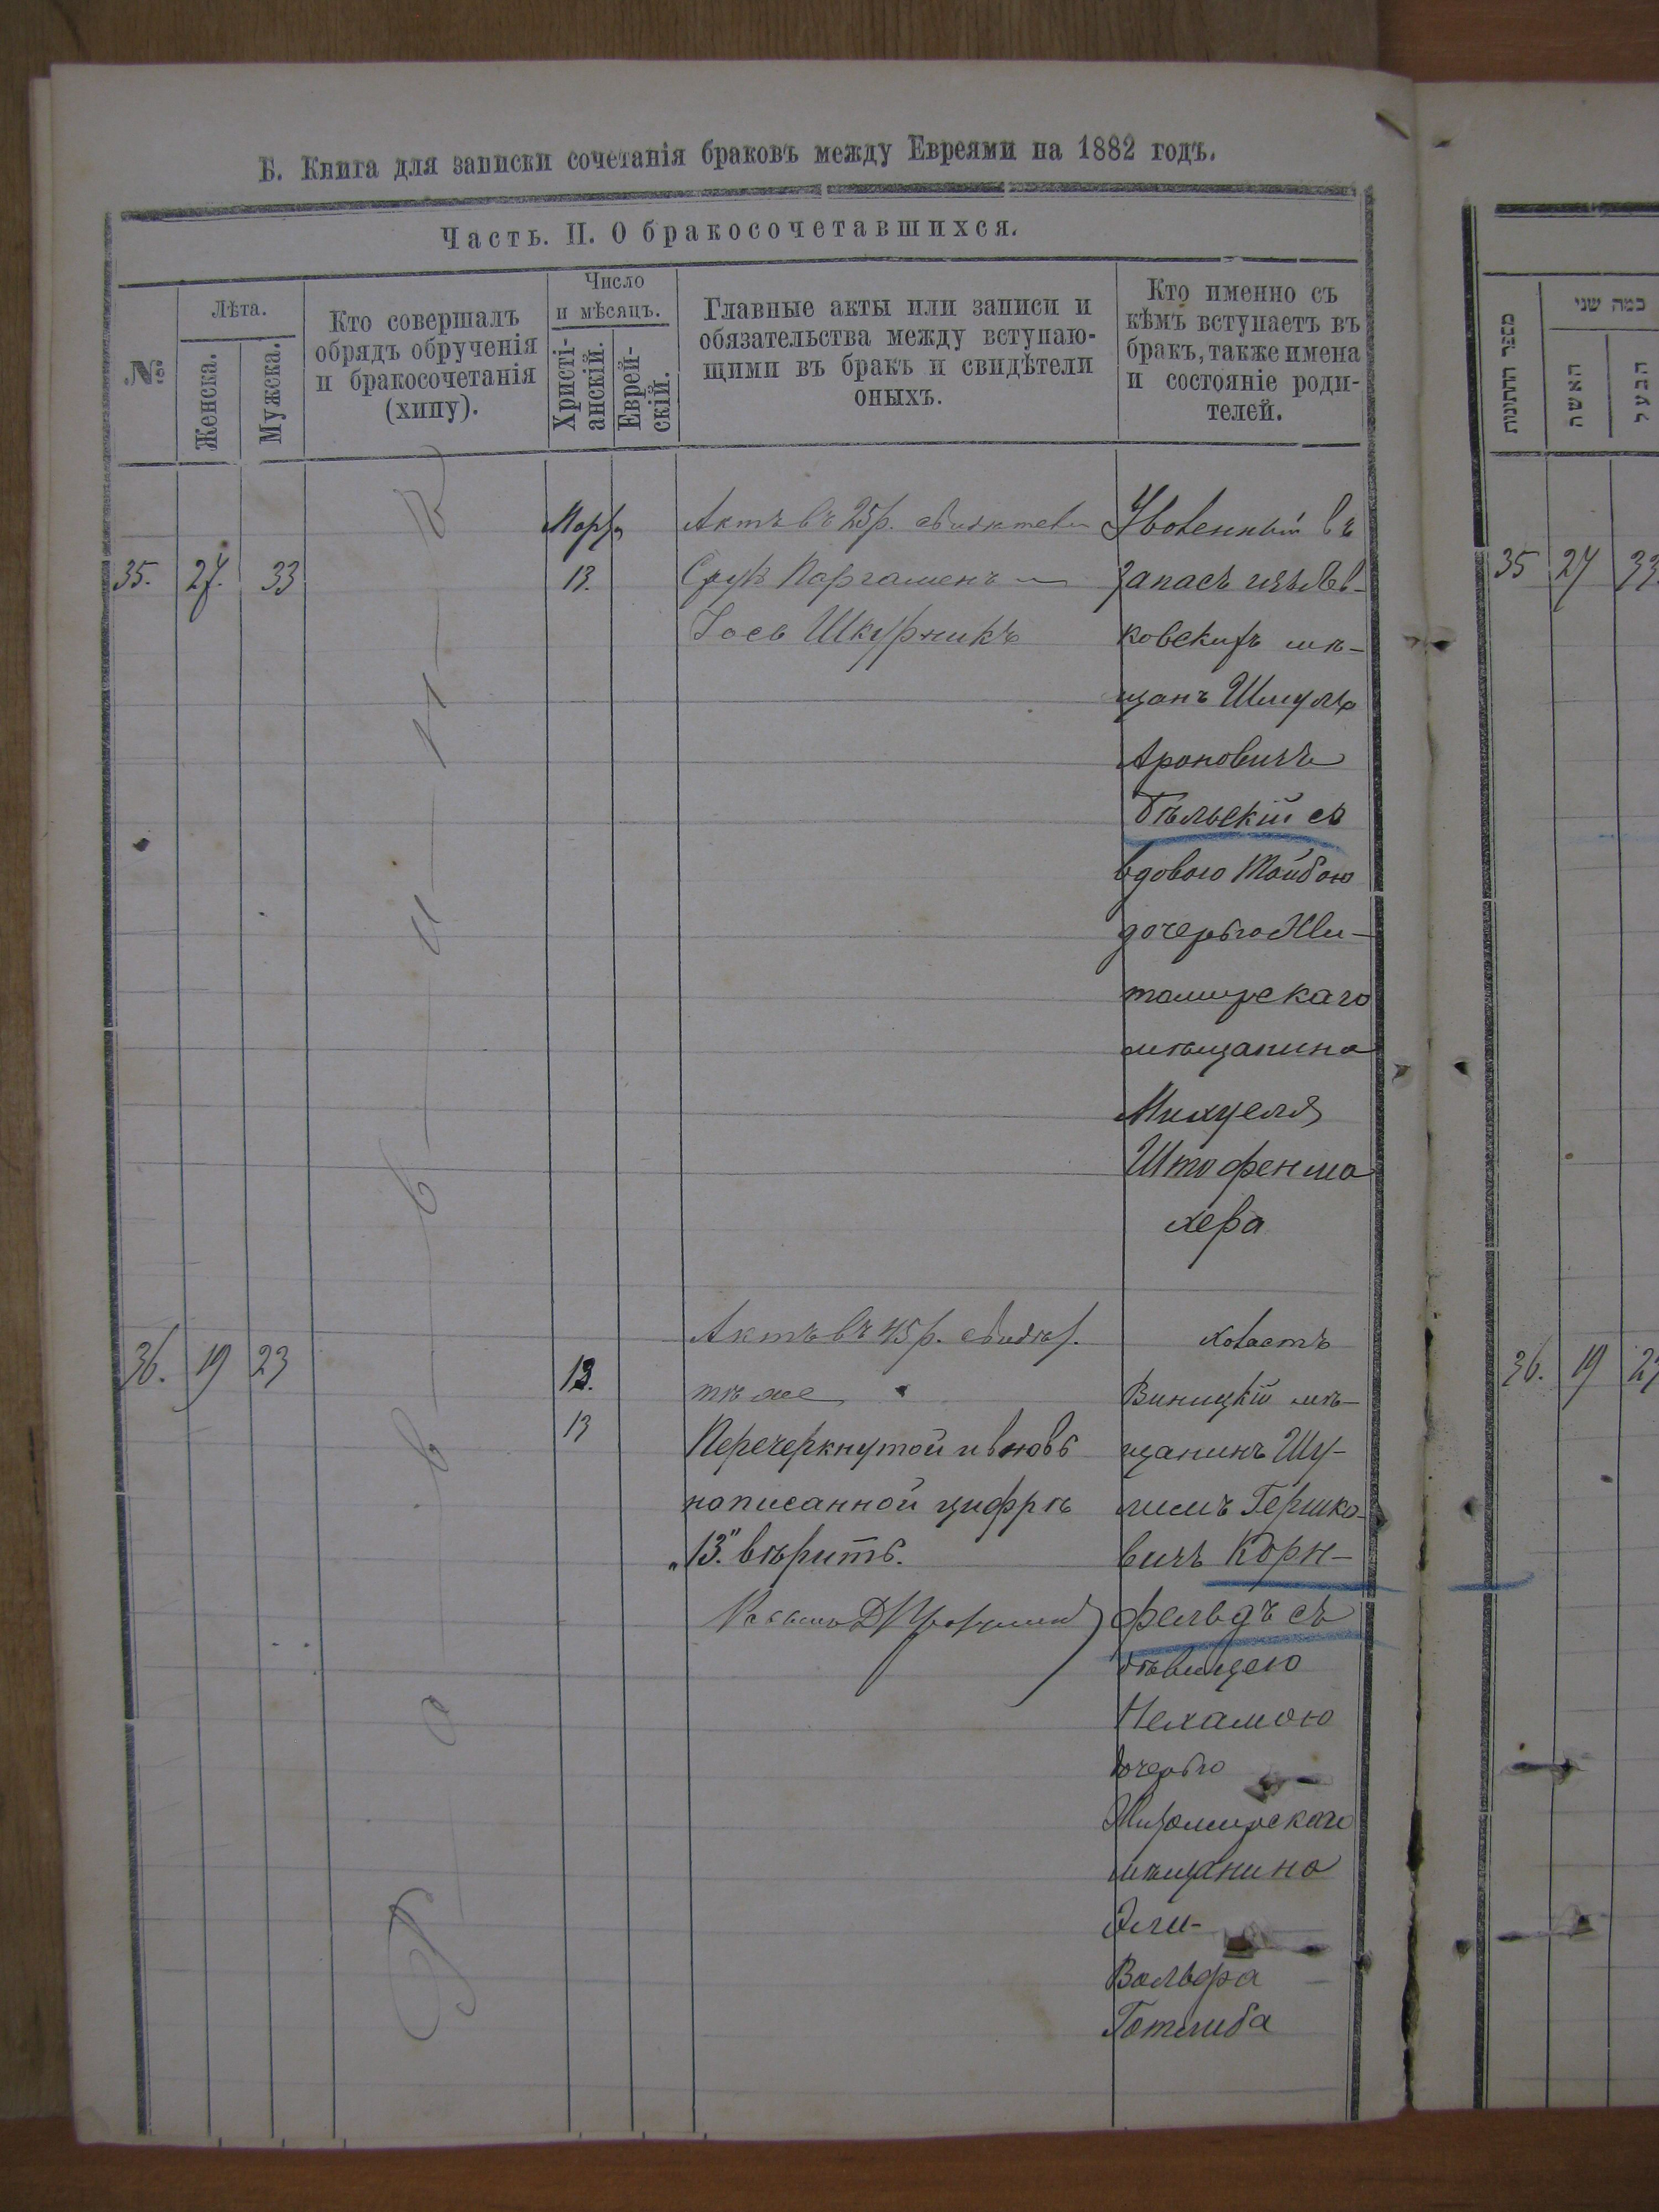 Б. Книга для записки сочетанія браковъ между Евреями на 1882 годъ.
Часть. II. О бракосочетавшихся.
№
Лѣта.
Женска.
Мужска.
Кто совершалъ
обрядъ обрученія
и бракосочетанія
(хипу).
Число
и мѣсяцъ.
Христі-
анскій.
Еврей-
скій.
Главные акты или записи и
обязательства между вступаю-
щими въ бракъ и свидѣтели
оныхъ.
Кто именно съ
кѣмъ вступаетъ въ
бракъ, также имена
и состояніе роди-
телей.
Раввинъ
35.
27.
33
Марта
13.
Актъ въ 25 р. свидѣтели
Сруль Паргаменъ
Іось Шкурникъ
Уволенный въ
запасъ изъ Лев-
ковскихъ мѣ-
щанъ Шмуль
Ароновичъ
Бѣльскій съ
вдовою Тойбою
дочерью Жи-
томирскаго
мѣщанина
Михуеля
Штофенма
хера
36.
19
23
13.
13
Актъ въ 45 р. свидѣт.
тѣ же
Перечеркнутой и вновь
написанной цифрѣ
„13." вѣрить.
холастъ
Виницкій мѣ-
щанинъ Шу-
лимъ Гершко-
вичъ Корн-
фельдъ съ
дѣвицею
Нехамою
дочерью
Житомирскаго
мѣщанина
Эли-
Вольфа
Готлиба
מספר החתונות
כמה שני
האשה
הבעל
35
27
33
36.
19